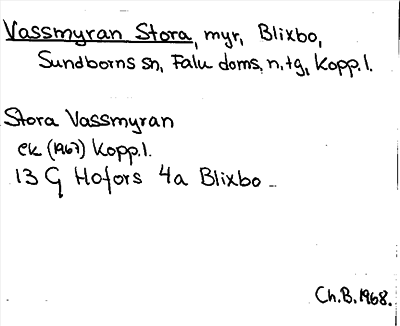 Vassmyran Stora, myr, Blixbo,
Sundborns sn, Falu doms. n. tg, Kopp. l.
Stora Vassmyran
ek (1967) Kopp. l.
13 G Hofors 4a Blixbo
Ch. B. 1968.